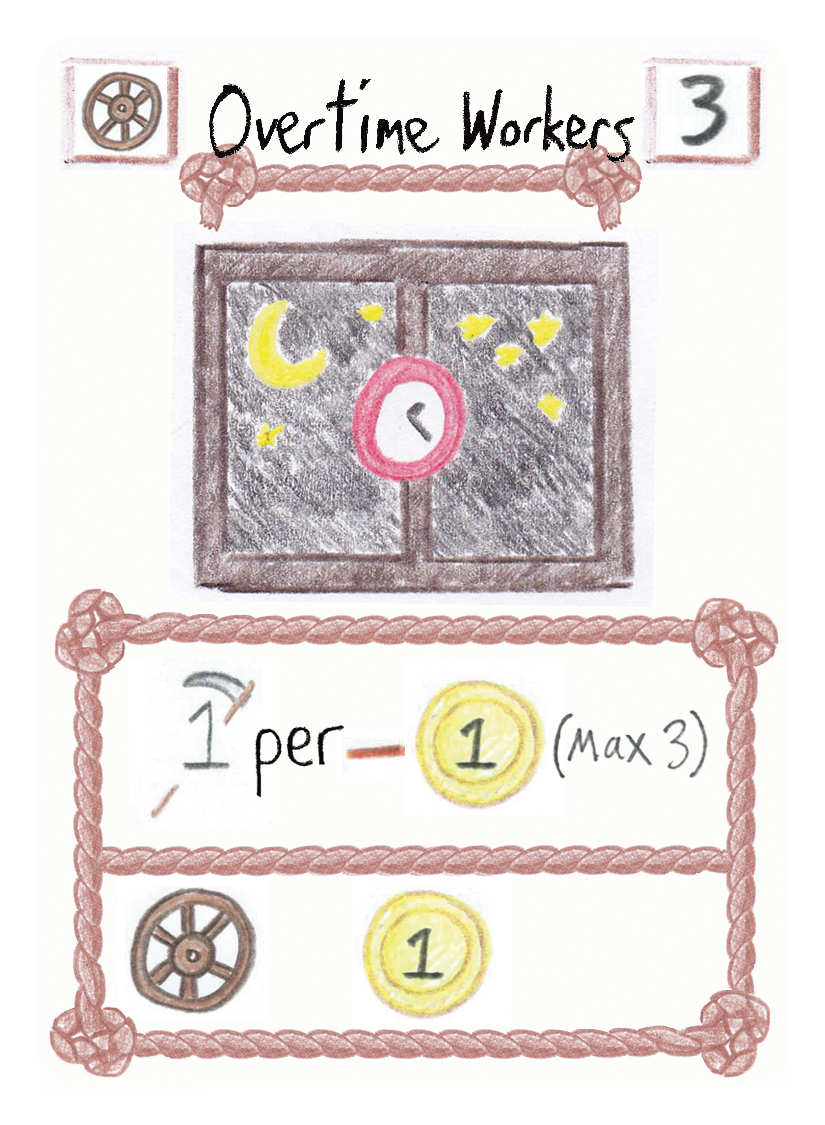 Overtime Workers 3
1 per - 1 (Max 3)
1